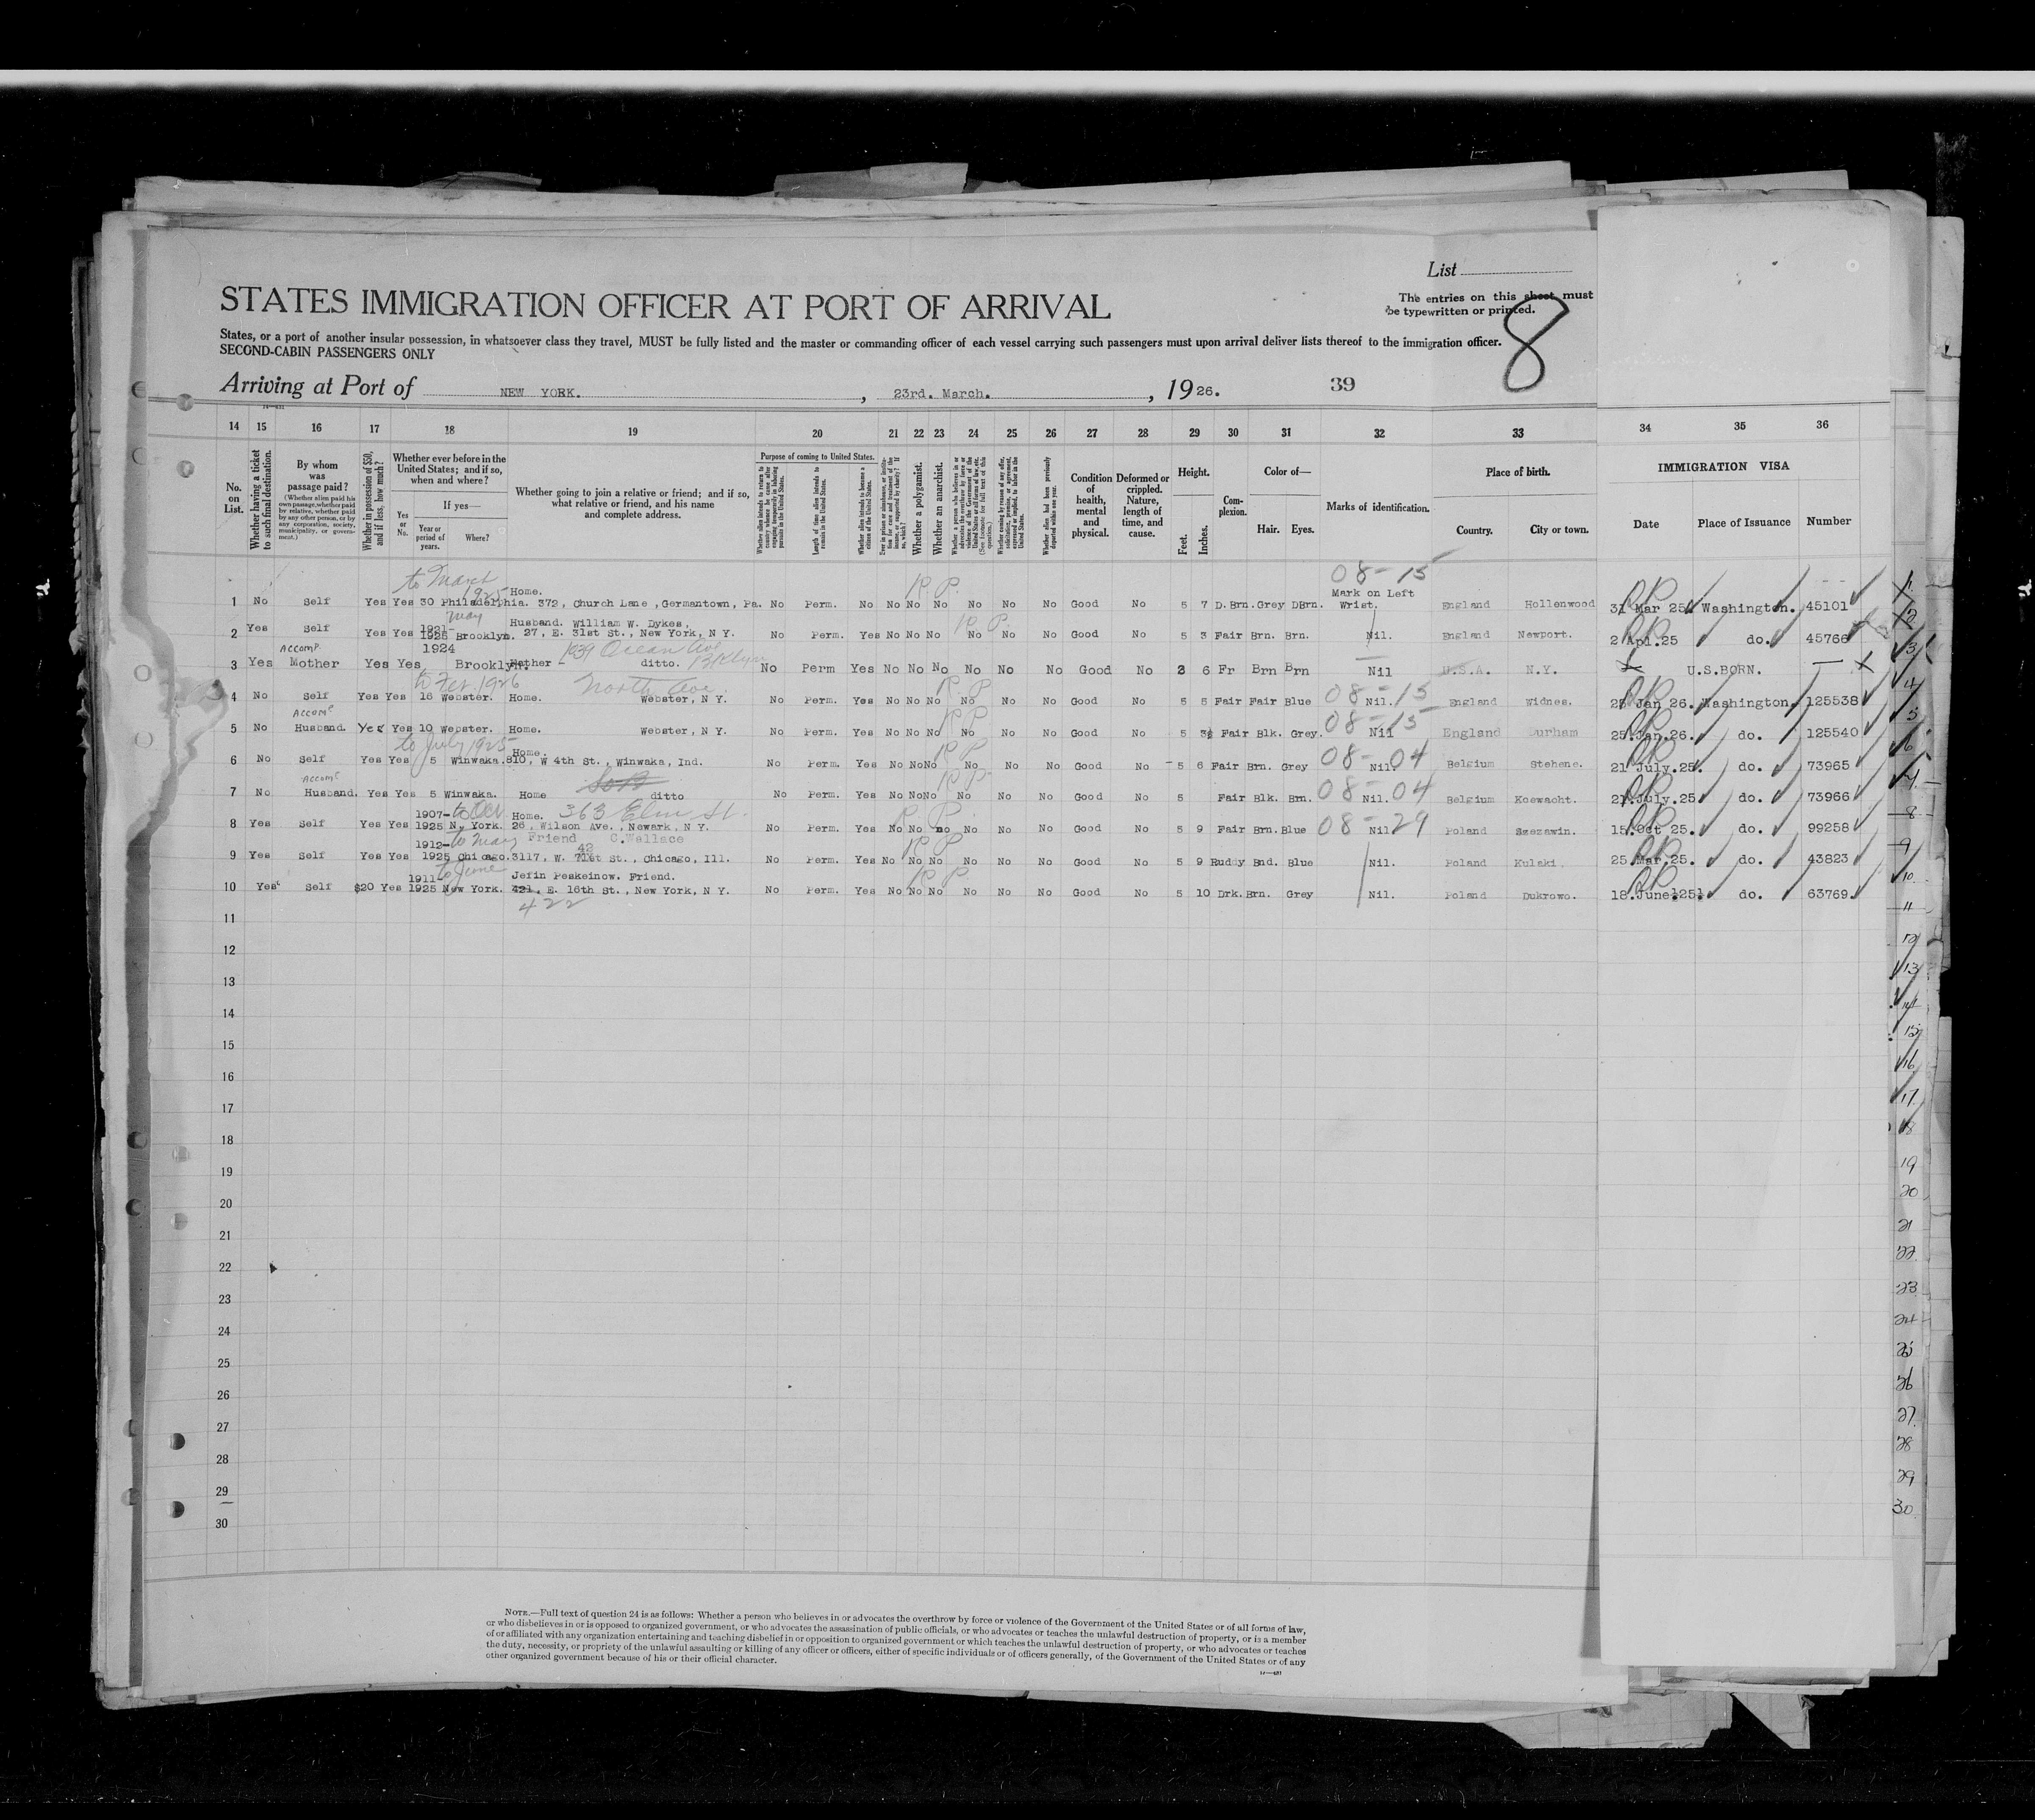 List
The entries on this sheet must
be typewritten or printed.
8
STATES IMMIGRATION OFFICER AT PORT OF ARRIVAL
States, or a port of another insular possession, in whatsoever class they travel, MUST be fully listed and the master or commanding officer of each vessel carrying such passengers must upon arrival deliver lists thereof to the immigration officer.
SECOND-CABIN PASSENGERS ONLY
Arriving at Port of NEW YORK. , 23rd. March. , 1926. 39
14 15 16 17 18 19 20 21 22 23 24 25 26 27 28 29 30 31 32 33 34 35 36
No. on List.
Whether having a ticket to such final destination.
By whom was passage paid?
(Whether alien paid his own passage, whether paid by relative, whether paid by any other person, or by any corporation, society, municipality, or government.)
Whether in possession of $50, and if less, how much?
Whether ever before in the United States; and if so, when and where?
If yes—
Yes or No.
Year or period of years.
Where?
Whether going to join a relative or friend; and if so, what relative or friend, and his name and complete address.
Purpose of coming to United States.
Length of time alien intends to remain in the United States.
Whether alien intends to become a citizen of the United States.
Whether a polygamist.
Whether an anarchist.
Condition of health, mental and physical.
Deformed or crippled. Nature, length of time, and cause.
Height.
Feet. Inches.
Complexion.
Color of—
Hair. Eyes.
Marks of identification.
Place of birth.
Country. City or town.
IMMIGRATION VISA
Date Place of Issuance Number
to March 1925 Home. R.P. 08-15 Mark on Left
1 No Self Yes Yes 30 Philadelphia. 372, Church Lane, Germantown, Pa. No Perm. No No No No No No No Good No 5 7 D.Brn. Grey DBrn. Wrist. England Hollenwood 31 Mar 25 Washington. 45101
May Husband. William W. Dykes, R.P.
2 Yes Self Yes Yes 1921-1925 Brooklyn. 27, E. 31st St., New York, N Y. No Perm. Yes No No No No No No Good No 5 3 Fair Brn. Brn. Nil. England Newport. 2 Apl.25 do. 45766
Accomp. 1924 1939 Ocean Ave Bklyn
3 Yes Mother Yes Yes Brooklyn. Father ditto. No Perm Yes No No No No No No Good No 2 6 Fr Brn Brn Nil U.S.A. N.Y. U.S.BORN.
to Fer 1926 North Ave R.P. 08-15
4 No Self Yes Yes 16 Webster. Home. Webster, N Y. No Perm. Yes No No No No No No Good No 5 5 Fair Fair Blue Nil. England Widnes. 25 Jan 26. Washington. 125538
Accomp. R P 08-15
5 No Husband. Yes Yes 10 Webster. Home. Webster, N Y. No Perm. Yes No No No No No No Good No 5 3½ Fair Blk. Grey. Nil England Durham 25.Jan.26. do. 125540
to July 1925 Home. R P 08-04
6 No Self Yes Yes 5 Winwaka. 810, W 4th St., Winwaka, Ind. No Perm. Yes No No No No No No Good No 5 6 Fair Brn. Grey Nil. Belgium Stehene. 21 July.25. do. 73965
Accomp. R P 08-04
7 No Husband. Yes Yes 5 Winwaka. Home ditto No Perm. Yes No No No No No No Good No 5 Fair Blk. Brn. Nil. Belgium Koewacht. 21.July.25. do. 73966
1907- Home. 363 Elm St. R P 08-29
8 Yes Self Yes Yes 1925 N. York. 26, Wilson Ave., Newark, N Y. No Perm. Yes No No no No No No Good No 5 9 Fair Brn. Blue Nil Poland Szezawin. 15.Oct 25. do. 99258
1912- to May Friend C.Wallace R P
42
9 Yes Self Yes Yes 1925 Chicago. 3117, W. 71st St., Chicago, Ill. No Perm. Yes No No No No No No Good No 5 9 Ruddy Bnd. Blue Nil. Poland Kulaki 25.Mar.25. do. 43823
1911- to June Jefin Peskeinow. Friend. R P
10 Yes Self $20 Yes 1925 New York. 421, E. 16th St., New York, N Y. No Perm. Yes No No No No No No Good No 5 10 Drk. Brn. Grey Nil. Poland Dukrowo. 18.June.25. do. 63769
422
11
12
13
14
15
16
17
18
19
20
21
22
23
24
25
26
27
28
29
30
NOTE.—Full text of question 24 is as follows: Whether a person who believes in or advocates the overthrow by force or violence of the Government of the United States or of all forms of law,
or who disbelieves in or is opposed to organized government, or who advocates the assassination of public officials, or who advocates or teaches the unlawful destruction of property, or is a member
of or affiliated with any organization entertaining and teaching disbelief in or opposition to organized government or which teaches the unlawful destruction of property, or who advocates or teaches
the duty, necessity, or propriety of the unlawful assaulting or killing of any officer or officers, either of specific individuals or of officers generally, of the Government of the United States or of any
other organized government because of his or their official character.